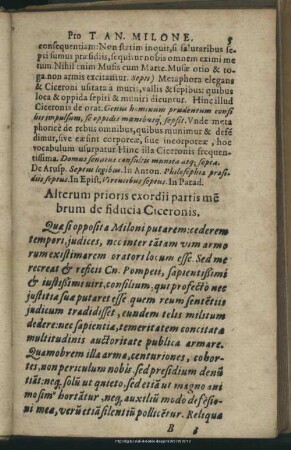 Pro T. AN. MILONE. 5
consequentiam: Non statim inquit, si salutaribus se-
pti sumus præsidiis, sequitur nobis omnem eximi me
tum. Nihil enim Musis cum Marte. Musæ otio & to-
ga non armis excitantur. Septi) Metaphora elegans
& Ciceroni usitata à muris, vallis & sepibus: quibus
loca & oppida sepiri & muniri dicuntur. Hinc illud
Ciceronis de orat. Genus hominum prudentum consi
liis impulsum, se oppidis munibusq́; sepsit. Vnde meta
phoricè de rebus omnibus, quibus munimur & defē
dimur, sive eæ sint corporeæ, sive incorporeæ, hoc
vocabulum usurpatur. Hinc illa Ciceronis frequen-
tissima. Domus senatus consultis munita atq; septa.
De Arusp. Septus legibus. In Anton. Philosophiæ præsi-
diis septus. In Epist. Virtutibus septus. In Parad.
Alterum prioris exordii partis mē
brum de fiducia Ciceronis.
Quæ si opposita Miloni putarem: cederem
tempori, judices, nec inter tātam vim armo
rum existimarem oratori locum esse. Sed me
recreat & reficit Cn. Pompeii, sapientissimi
& justissimi viri, consilium, qui profectò nec
justitiæ suæ putaret esse quem reum sentētiis
judicum tradidisset, eundem telis militum
dedere: nec sapientiæ, temeritatem concitatæ
multitudinis auctoritate publica armare.
Quamobrem illa arma, centuriones, cohor-
tes, non periculum nobis sed præsidium denū
tiāt: neq; solū ut quieto, sed etiā ut magno ani
mo simꝰ hortātur, neq; auxiliū modo defēsio-
ni meæ, verū etiā silentiū pollicētur. Reliqua
B